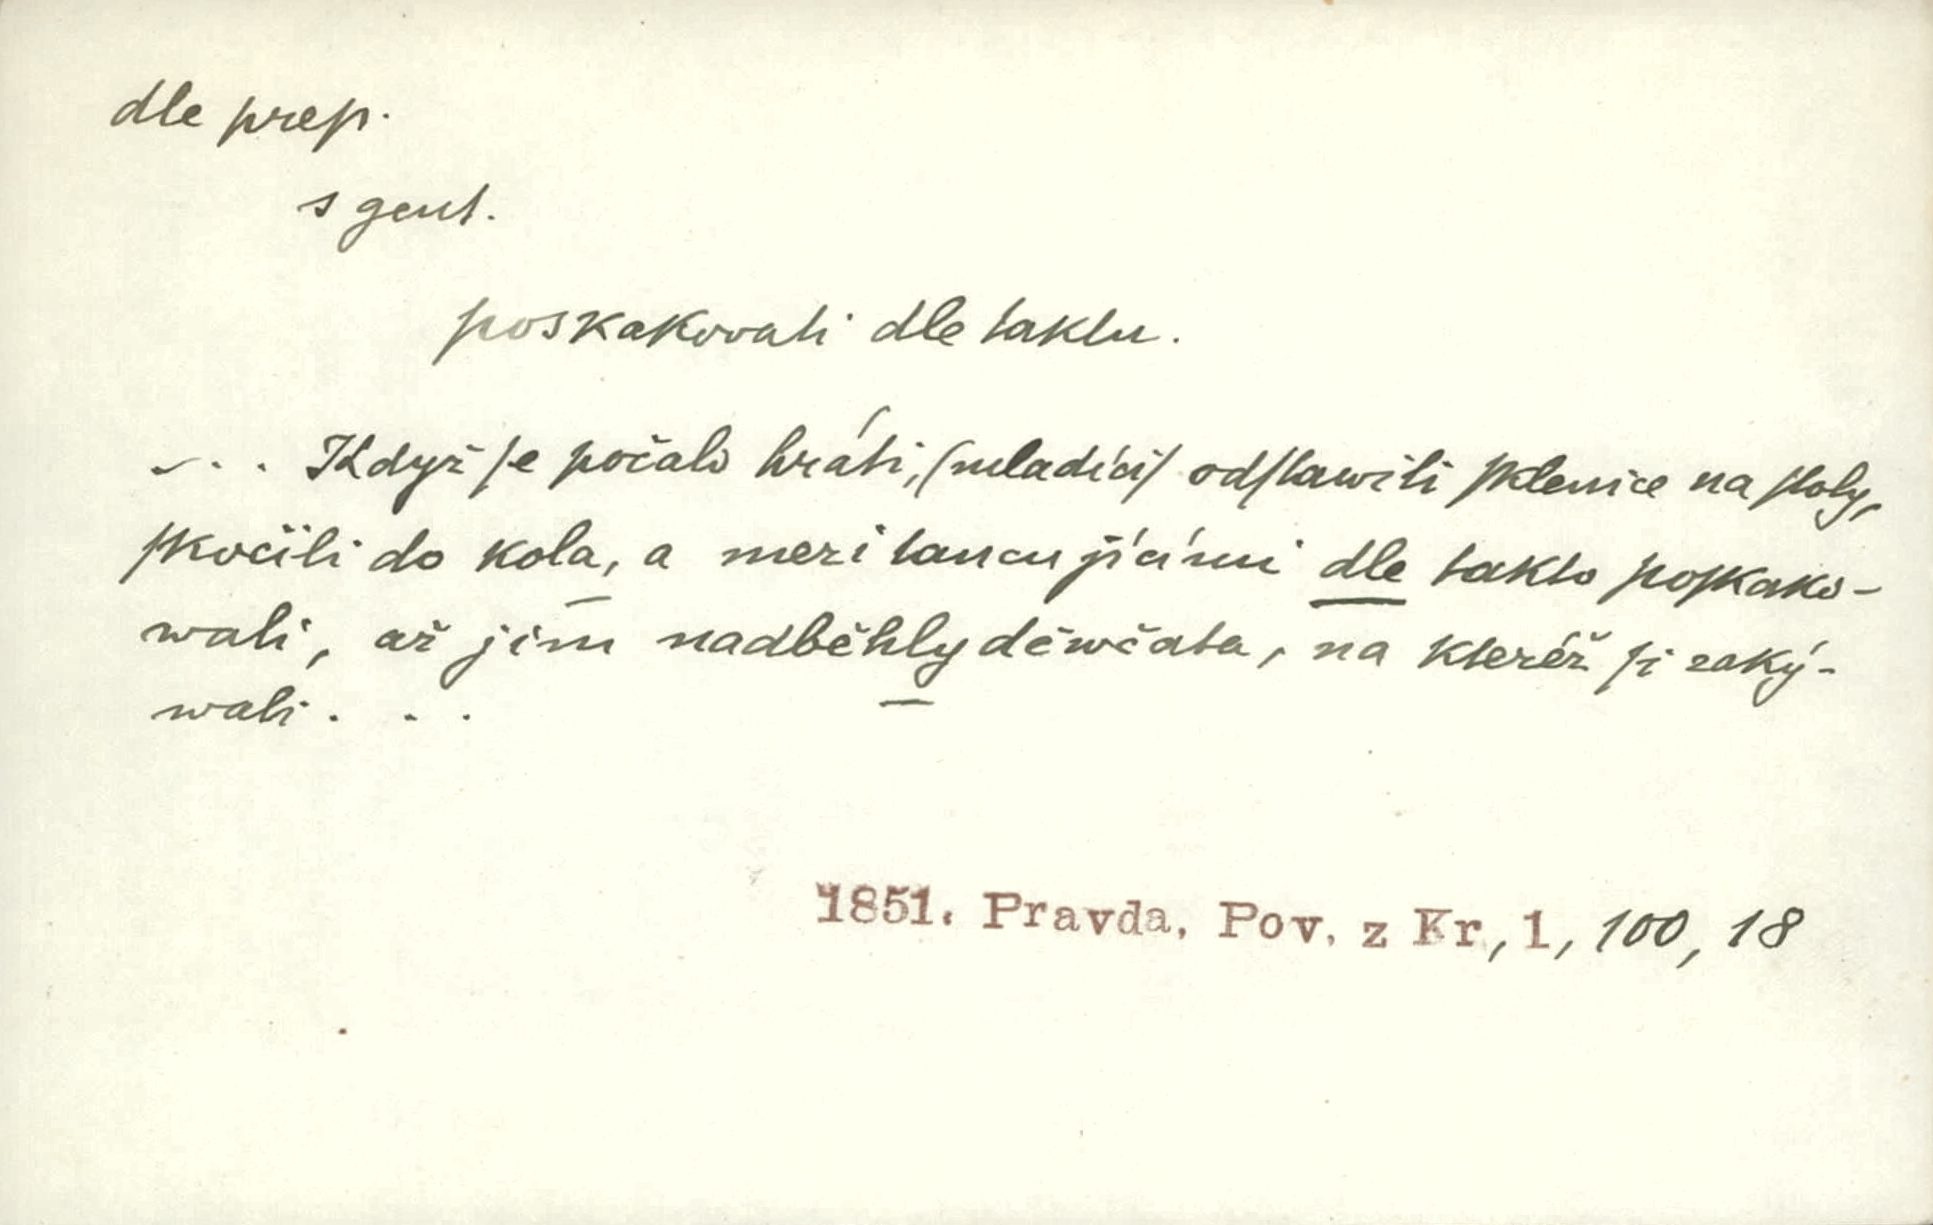 dle prep.
s gent.
poskakovati dle taktu.
... Když ſe počalo hráti, (mladíci) odſtawili ſklenice na ſtoly,
ſkočili do kola, a mezi tancujícími dle takto poſkako-
wali, až jim nadběhly děwčata, na kteréž ſi zaký-
wali...
1851. Pravda, Pov. z Kr, 1, 100, 18